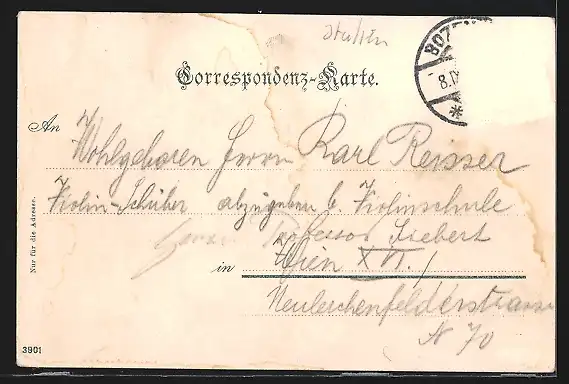 Italien
BOZEN
8.IV
Correspondenz-Karte.
An
Wohlgeboren Herrn Karl Reisser
Violin-Schüler abzugeben b. Violinschule
Professor Siebert
in Wien XVI./
Neulerchenfelderstrasse
N 70
Nur für die Adresse.
3901